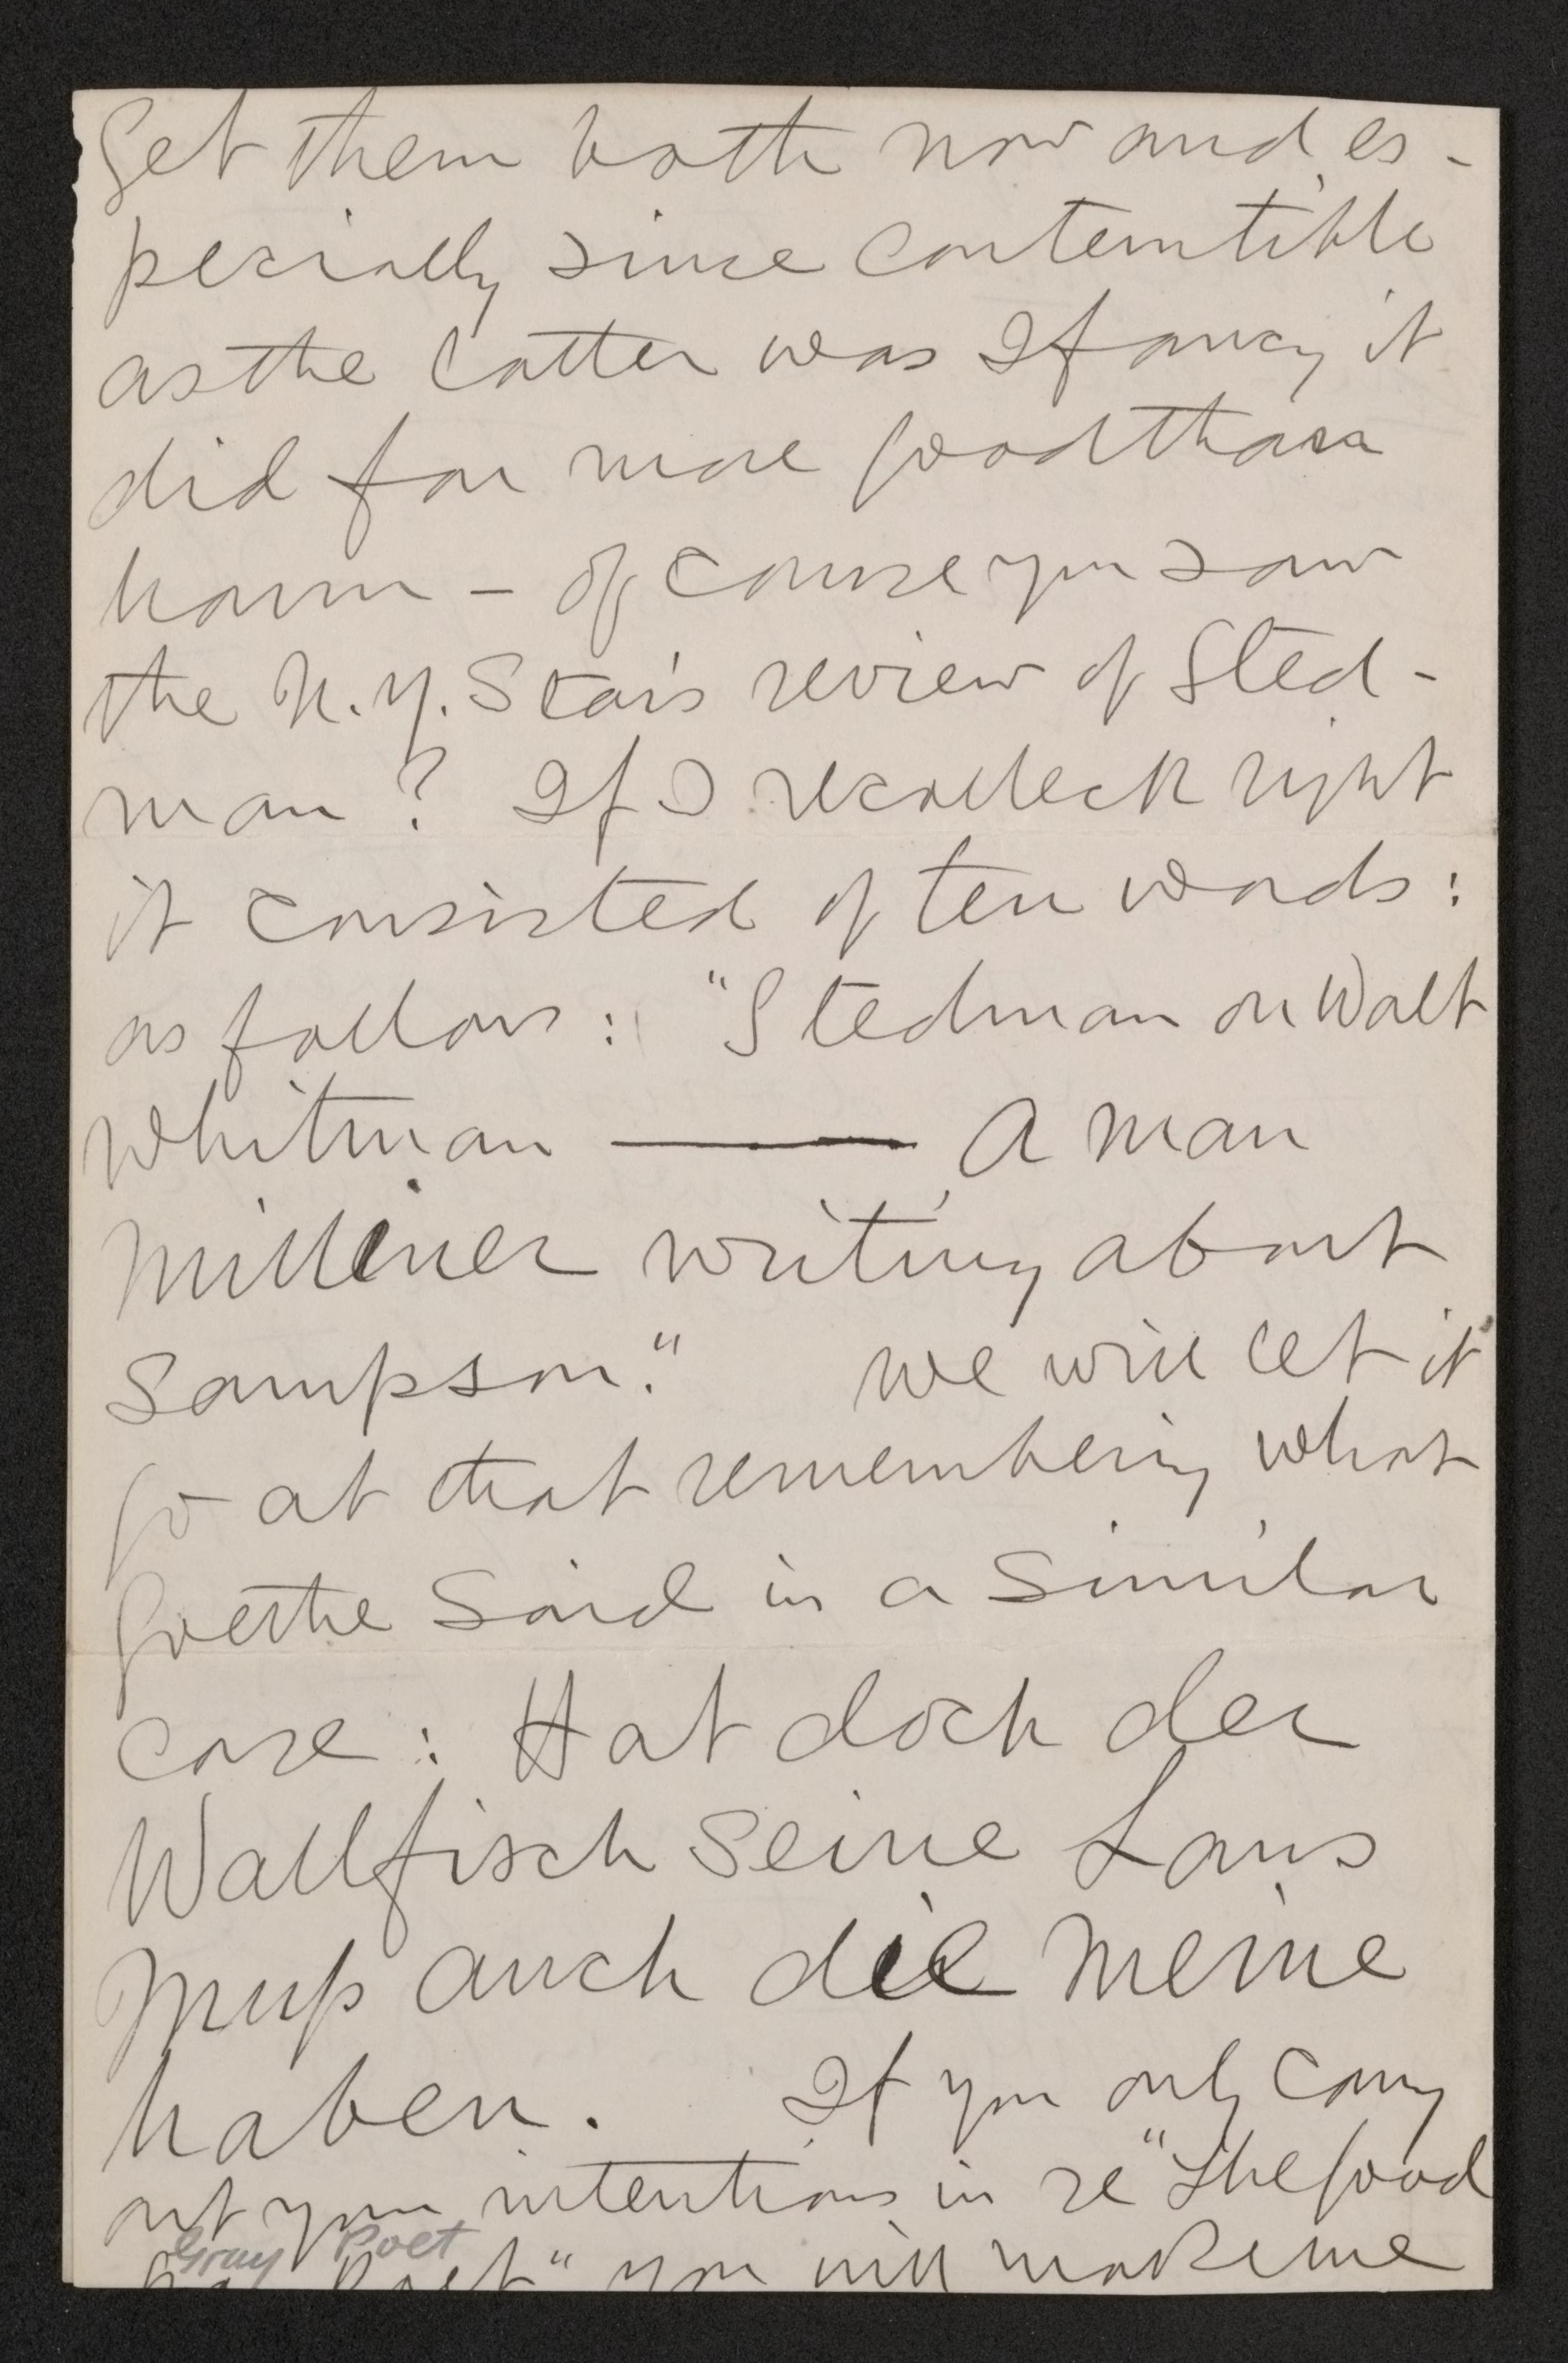 Get them both now and es-
pecially since contemtible
as the latter was I fancy it
did far more good than
harm - of course you saw
the N.Y. Star's review of Sted-
man? If I recolleck right
it consisted of ten words:
as follows: "Stedman on Walt
Whitman — A man
Milliner writing about
Sampson." We will let it
go at that remembering what
Goethe said in a similar
case: Hat doch der
Wallfisch seine Laus
Muß auch die Meine
haben. If you only carry
out your intentions in re "The Good
Gray Poet
Gray Poet" you will make me